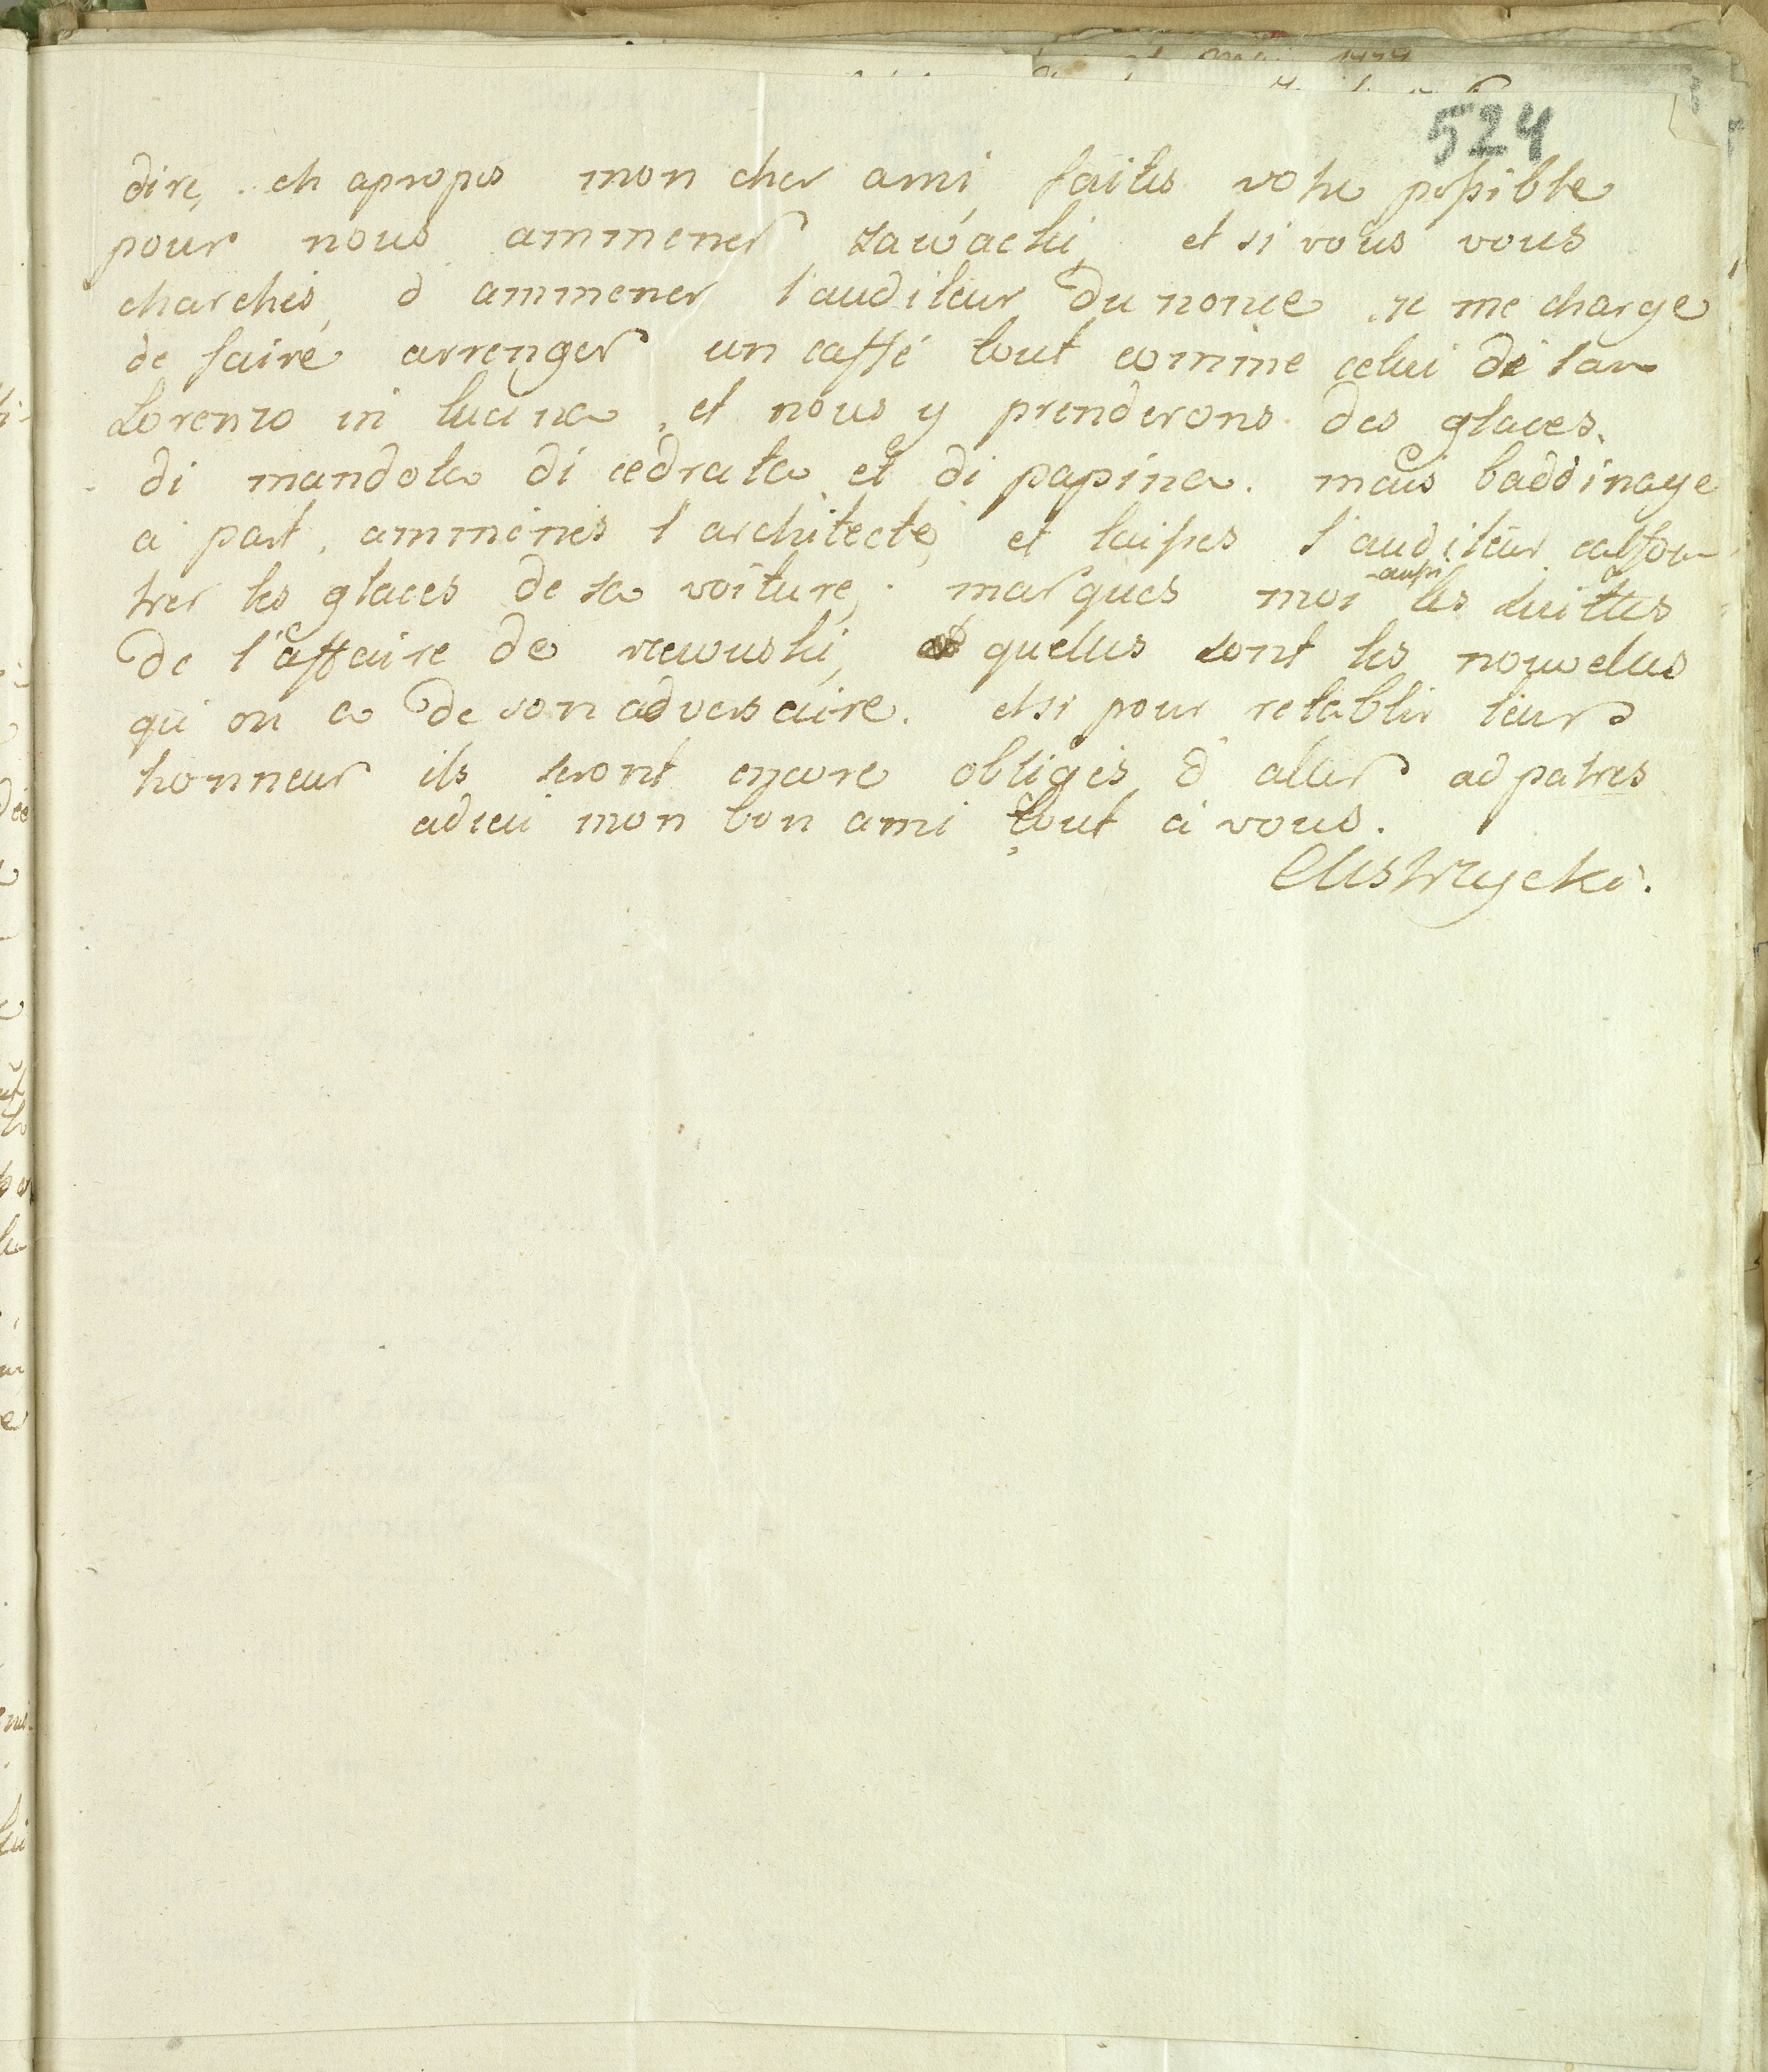 524
dire, eh apropos mon cher ami faites votre possible
pour nous ammener zawacki et si vous vous
charchés d ammener l'auditeur du nonce je me charge
de faire arrenger un caffé tout comme celui de san
Lorenzo in lucina, et nous y prenderons des glaces.
di mandola di cedrata et di papina. mais baddinage
a part, ammenés l architecte, et laisses l'auditeur calfou
trer les glaces de sa voiture, marques moi aussi les suittes
de l'affaire de rzewuski, quelles sont les nouvelles
qu on a de son adversaire. et si pour retablir leurs
honneur ils seront encore obligés d aller ad patres
adieu mon bon ami tout à vous.
CUstrzycki.